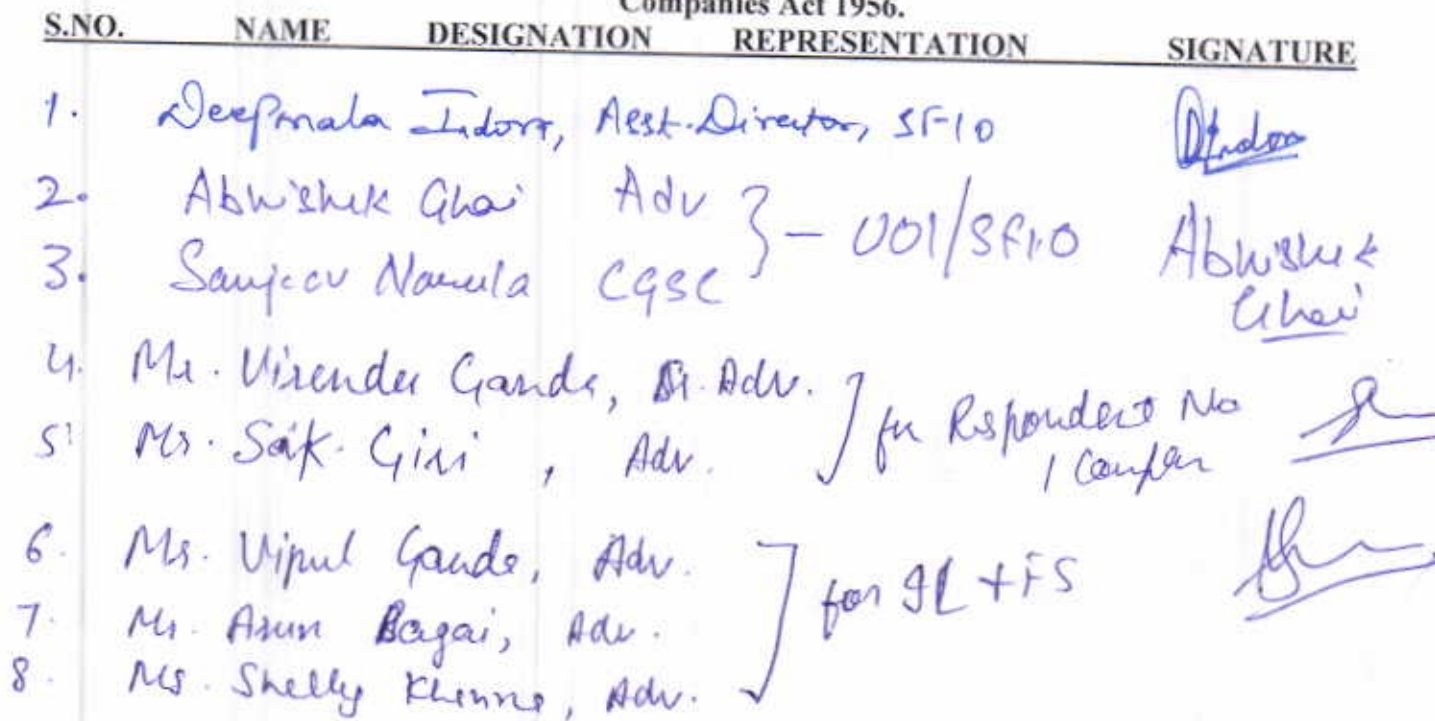 Companies Act 1956.
S.NO. NAME DESIGNATION REPRESENTATION SIGNATURE
1. Deepmala Indora, Asst. Director, SFIO
2. Abhishek Ghai Adv } - UOI/SFIO Abhishek Ghai
3. Sanjeev Narula CGSC
4. Mr. Virender Ganda, Sr. Adv. ] for Respondent No
5. Mr. Giri, Adv. 1
6. Mr. Vipul Ganda, Adv.
7. Mr. Arun Bagai, Adv. ] for IL+FS
8. Ms. Shelly Khanna, Adv.